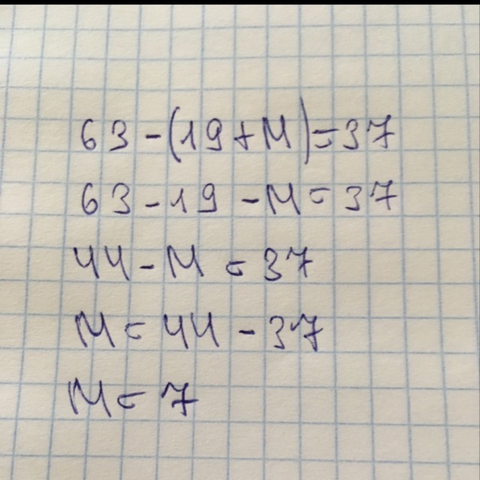 63 - (19 + M) = 37
63 - 19 - M = 37
44 - M = 37
M = 44 - 37
M = 7